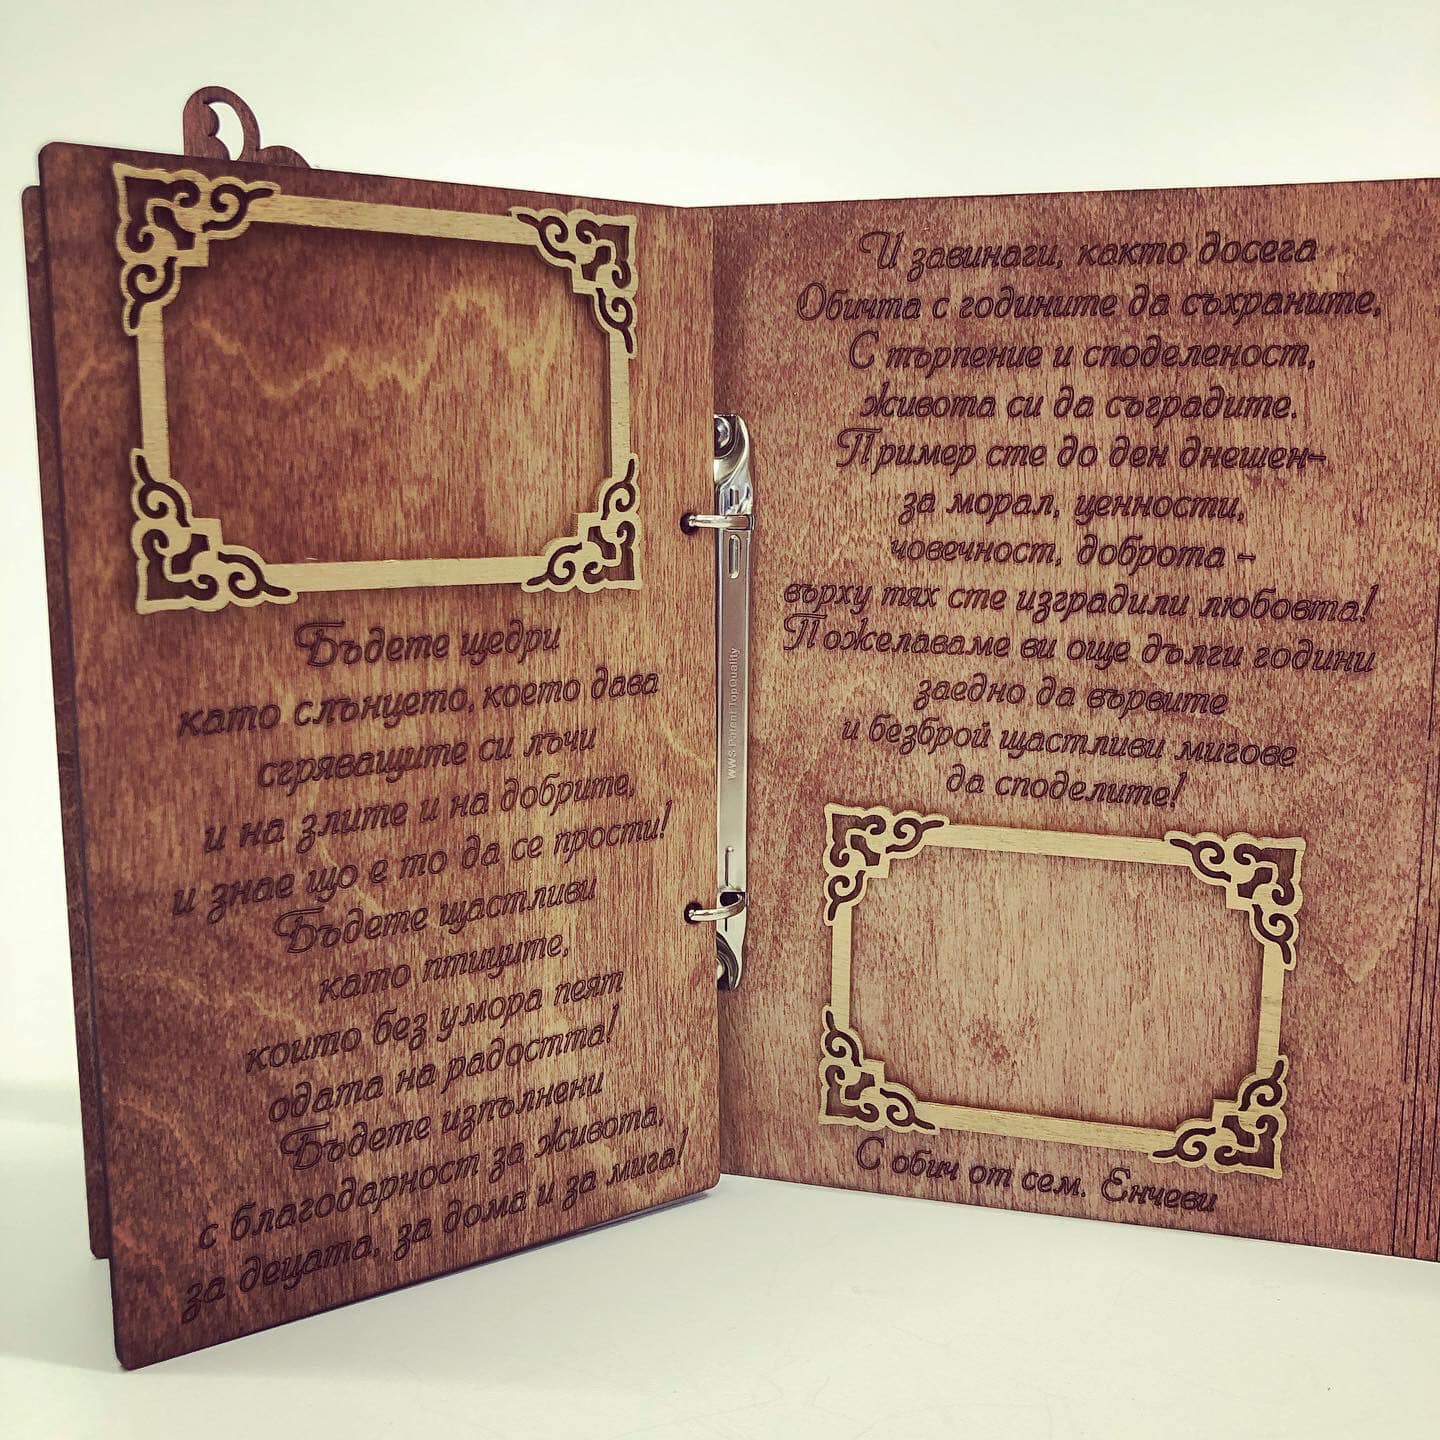 Бъдете щедри
като слънцето, което дава
сгряващите си лъчи
и на злите и на добрите,
и знае що е то да се прости!
Бъдете щастливи
като птиците,
които без умора пеят
одата на радостта!
Бъдете изпълнени
с благодарност за живота,
за децата, за дома и за мига!
WWS Patent TopQuality
И завинаги, както досега
Обичта с годините да съхраните,
С търпение и споделеност,
живота си да съградите.
Пример сте до ден днешен-
за морал, ценности,
човечност, доброта -
върху тях сте изградили любовта!
Пожелаваме ви още дълги години
заедно да вървите
и безброй щастливи мигове
да споделите!
С обич от сем. Енчеви